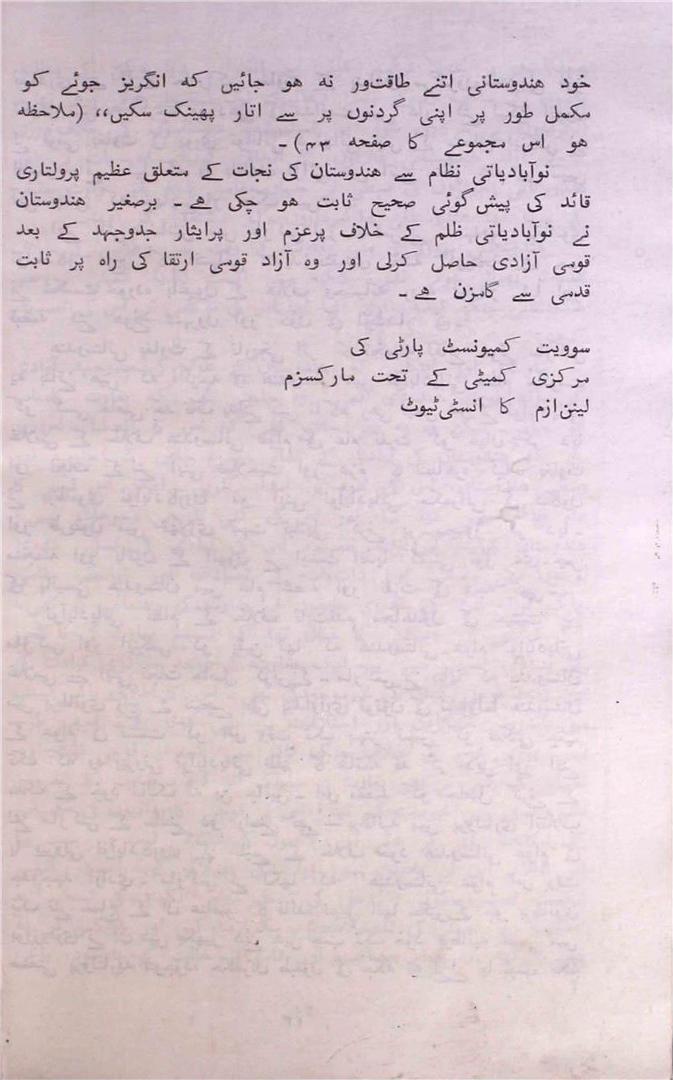 خود ھندوستانی اتنے طاقت‌ور نہ ھو جائیں کہ انگریز جوئے کو
مکمل طور پر اپنی گردنوں پر سے اتار پھینک سکیں،، (ملاحظہ
ھو اس مجموعے کا صفحہ ۴۳)۔
نوآبادیاتی نظام سے ھندوستان کی نجات کے متعلق عظیم پرولتاری
قائد کی پیش‌گوئی صحیح ثابت ھو چکی ھے۔ برصغیر ھندوستان
نے نوآبادیاتی ظلم کے خلاف پرعزم اور پرایثار جدوجہد کے بعد
قومی آزادی حاصل کرلی اور وہ آزاد قومی ارتقا کی راہ پر ثابت
قدمی سے گامزن ھے۔
سوویت کمیونسٹ پارٹی کی
مرکزی کمیٹی کے تحت مارکسزم
لینن‌ازم کا انسٹی‌ٹیوٹ